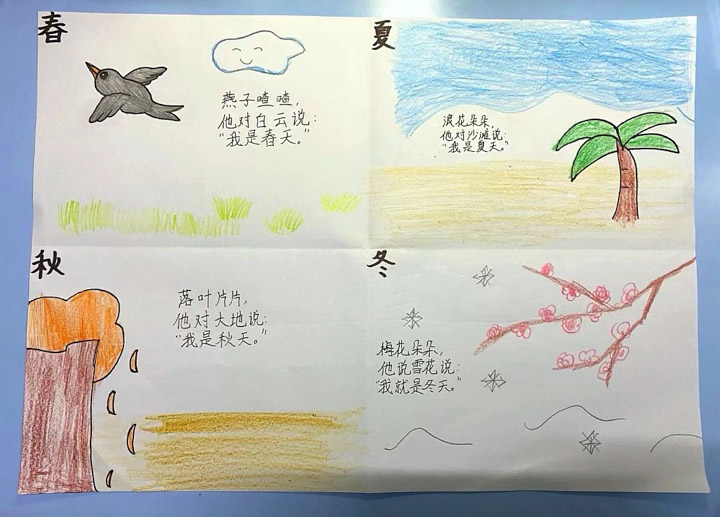 春
燕子喳喳，
他对白云说：
“我是春天。”
夏
浪花朵朵，
他对沙滩说：
“我是夏天。”
秋
落叶片片，
他对大地说：
“我是秋天。”
冬
梅花朵朵，
他说雪花说：
“我就是冬天。”